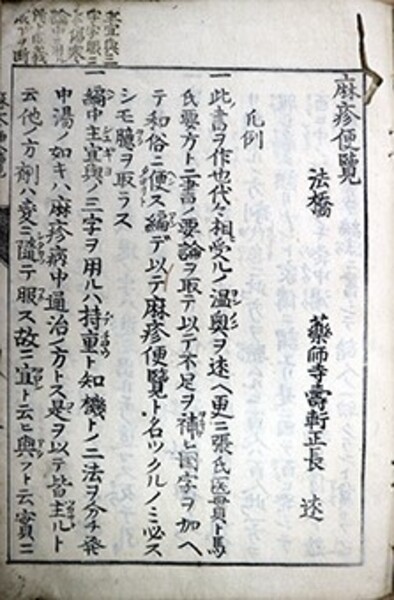 麻疹便覧
法橋 藥師寺壽軒正長 述
凡例
一此書ヲ作也代々相受ルノ溫奥ヲ述ヘ更ニ張氏医貫ト馬
氏要方ト二書ノ要論ヲ取テ以テ不足ヲ補ヒ國字ヲ加ヘ
テ和俗ニ便ス編テ以テ麻疹便覧ト名ツクルノミ必ス
シモ臆ヲ取ラス
一編中主宜與ノ三字ヲ用ルハ持重ト知機トノ二法ヲ分チ發
中湯ノ如キハ麻疹病中通治ノ方トス是ヲ以テ皆主ルト
云他ノ方劑ハ変ニ隨テ服ス故ニ宜ト云ヒ與フト云實ニ
主宜與三